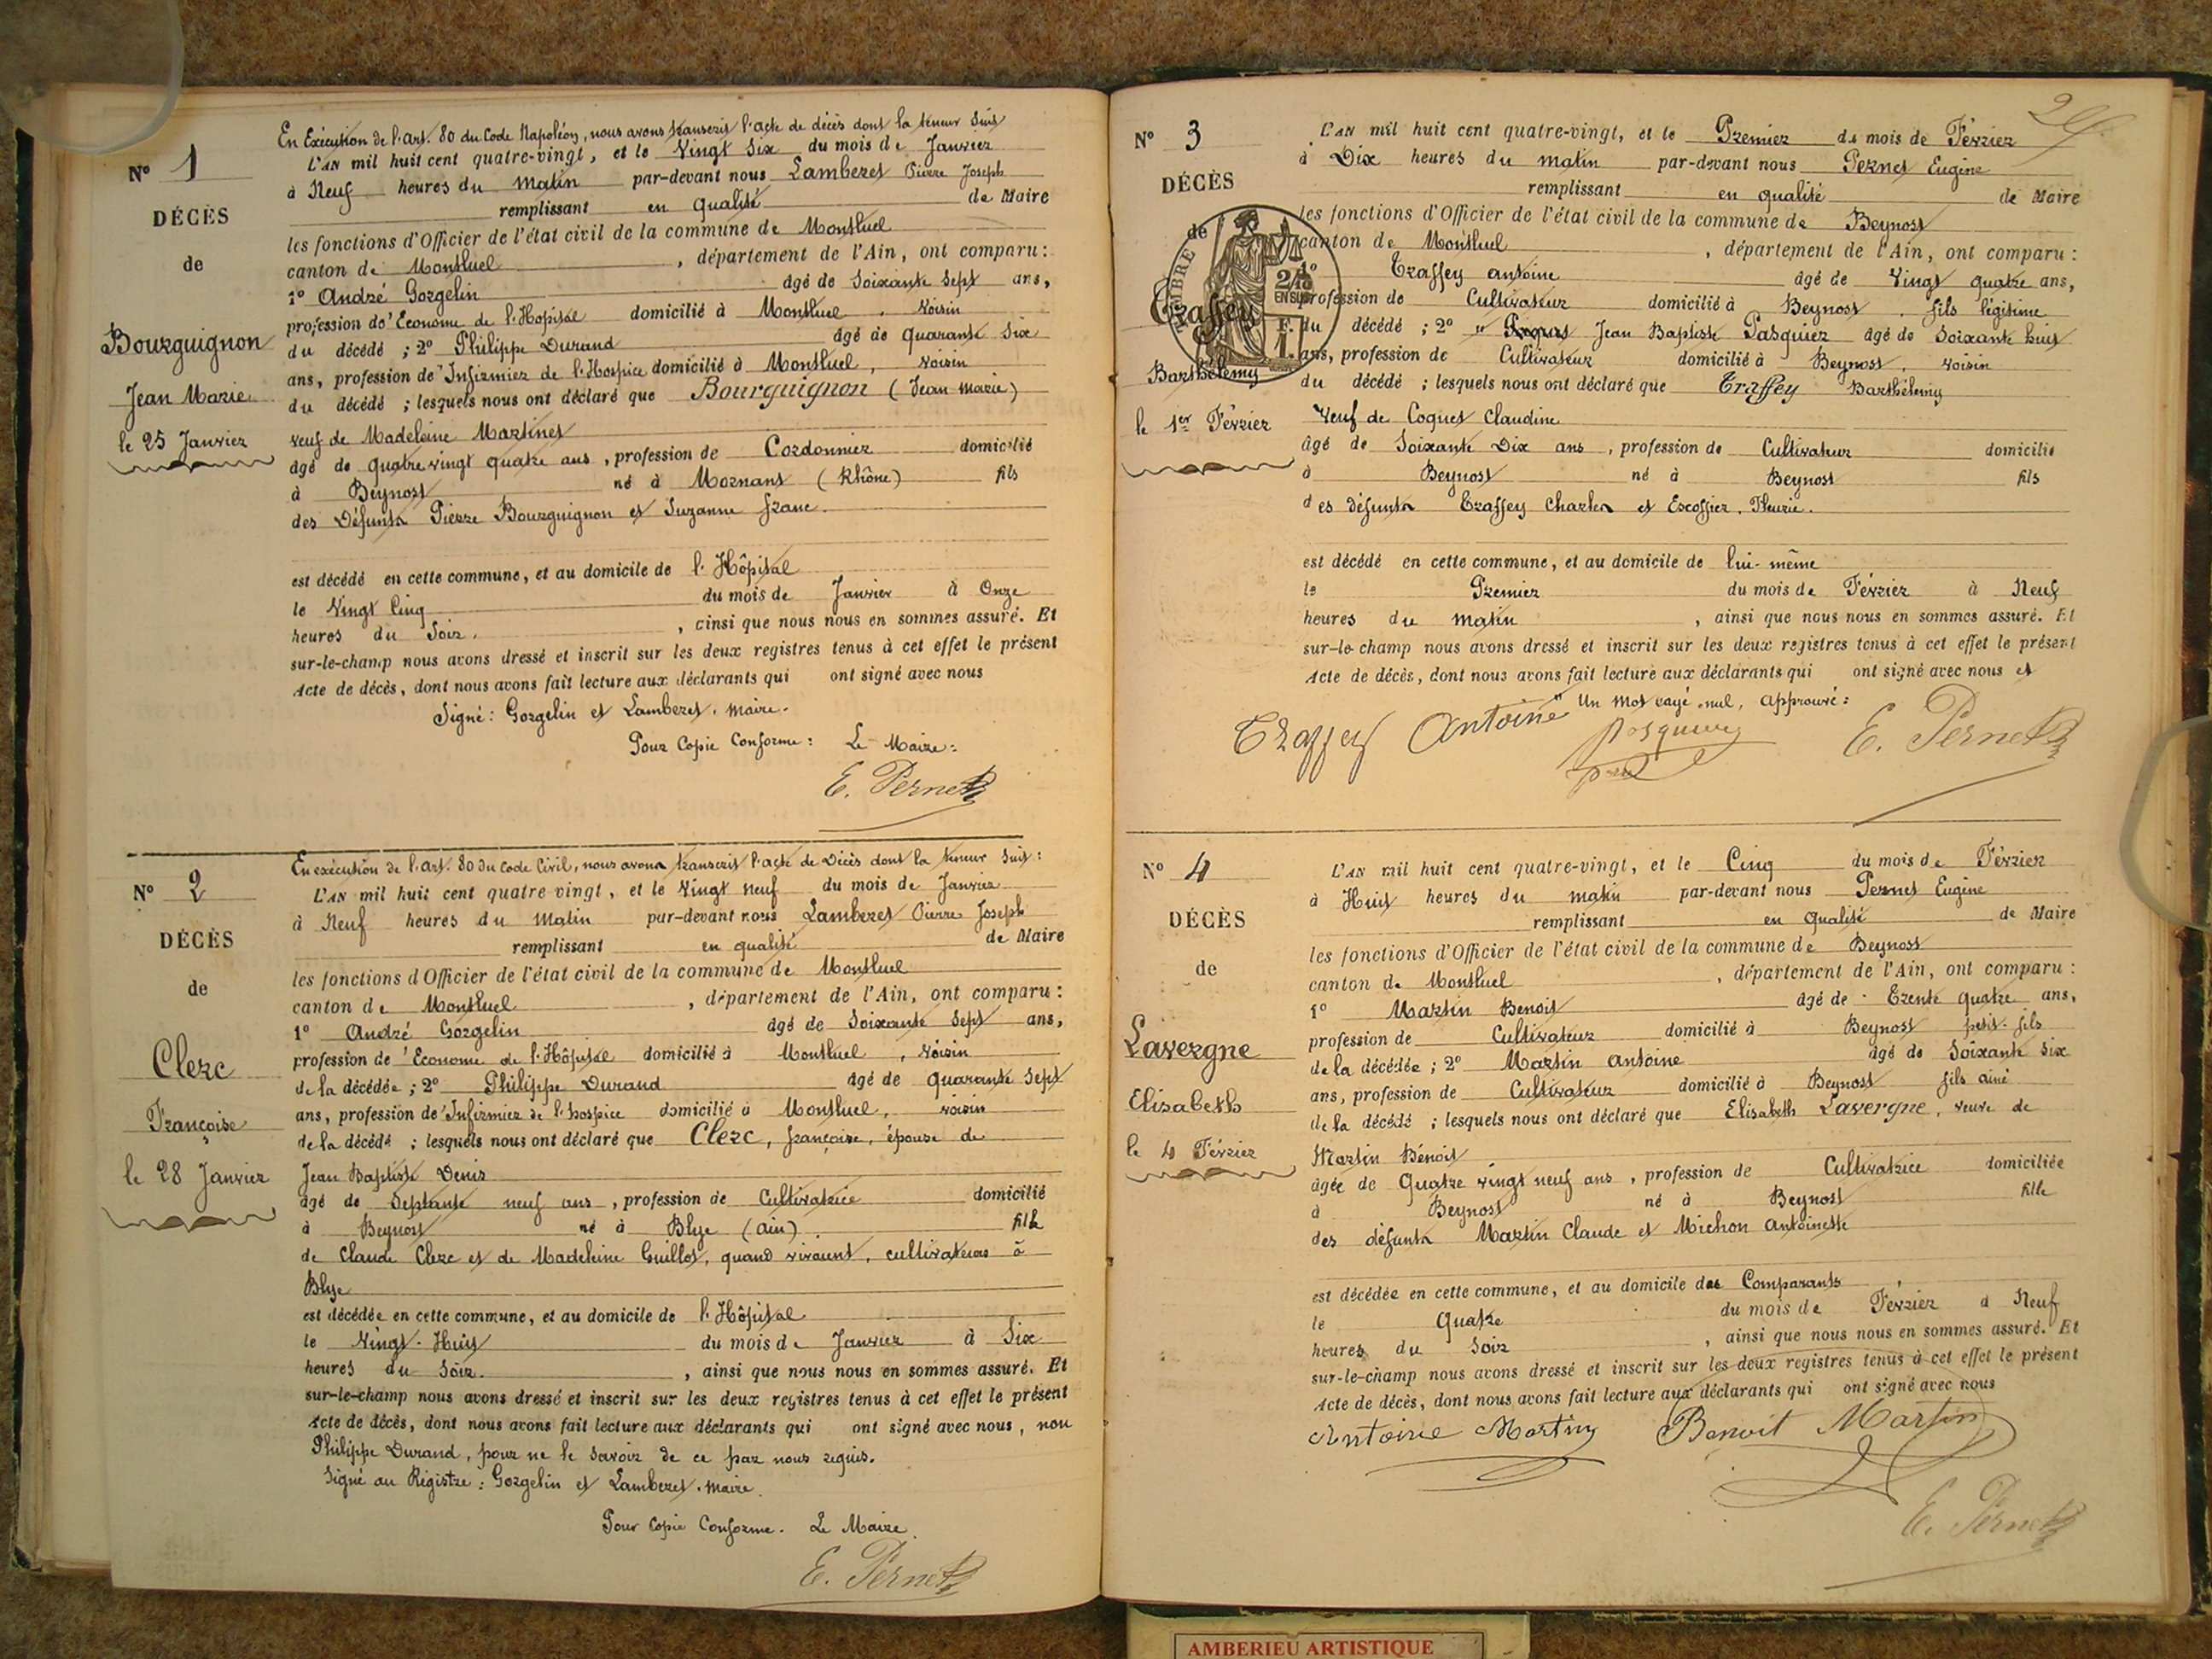 En Exécution de l'art. 80 du Code Napoléon, nous avons transcrit l'acte de décès dont la teneur suit
N° 1
L'AN mil huit cent quatre-vingt, et le Vingt Six du mois de Janvier
à Neuf heures du matin par-devant nous Lamberet Pierre Joseph
DÉCÈS
remplissant en qualité de Maire
les fonctions d'Officier de l'état civil de la commune de Montluel
de
canton de Montluel, département de l'Ain, ont comparu:
1° André Gorgelin âgé de Soixante Sept ans,
profession d'Econome de l'Hopital domicilié à Montluel, Voisin
Bourguignon
du décédé ; 2° Philippe Durand âgé de quarante Six
ans, profession d'Infirmier de l'Hospice domicilié à Montluel, voisin
Jean Marie
du décédé ; lesquels nous ont déclaré que Bourguignon (Jean Marie)
le 25 Janvier
veuf de Madeleine Martinet
âgé de quatre vingt quatre ans, profession de Cordonnier domicilié
à Beynost né à Mornant (Rhône) fils
des Défunts Pierre Bourguignon et Suzanne Franc.
est décédé en cette commune, et au domicile de l'Hôpital
le Vingt Cinq du mois de Janvier à Onze
heures du Soir, ainsi que nous nous en sommes assuré. Et
sur-le-champ nous avons dressé et inscrit sur les deux registres tenus à cet effet le présent
Acte de décès, dont nous avons fait lecture aux déclarants qui ont signé avec nous
Signé : Gorgelin et Lamberet, maire.
Pour Copie Conforme : Le Maire :
E. Pernet
En exécution de l'art. 80 du Code Civil, nous avons transcrit l'acte de Décès dont la teneur suit :
N° 2
L'AN mil huit cent quatre vingt, et le Vingt neuf du mois de Janvier
à Neuf heures du Matin par-devant nous Lamberet Pierre Joseph
DÉCÈS
remplissant en qualité de Maire
les fonctions d'Officier de l'état civil de la commune de Montluel
de
canton de Montluel, département de l'Ain, ont comparu :
1° André Gorgelin âgé de Soixante Sept ans,
profession d'Econome de l'Hôpital domicilié à Montluel, Voisin
Clerc
de la décédée ; 2° Philippe Durand âgé de quarante Sept
ans, profession d'Infirmier de l'hospice domicilié à Montluel, voisin
Françoise
de la décédé ; lesquels nous ont déclaré que Clerc, françoise, épouse de
le 28 Janvier
Jean Baptiste Denis
âgé de Septante neuf ans, profession de Cultivatrice domicilié
à Beynost né à Blye (ain). fille
de Claude Clerc et de Madeleine Guillot, quand vivaient, cultivateurs à
Blye
est décédée en cette commune, et au domicile de l'Hôpital
le Vingt-Huit du mois de Janvier à Six
heures du Soir., ainsi que nous nous en sommes assuré. Et
sur-le-champ nous avons dressé et inscrit sur les deux registres tenus à cet effet le présent
Acte de décès, dont nous avons fait lecture aux déclarants qui ont signé avec nous, non
Philippe Durand, pour ne le savoir de ce par nous requis.
Signé au Régistre : Gorgelin et Lamberet, maire.
Pour Copie Conforme. Le Maire.
E. Pernet
N° 3
L'AN mil huit cent quatre-vingt, et le Premier du mois de Février
à Dix heures du matin par-devant nous Pernet Eugène
DÉCÈS
remplissant en qualité de Maire
de
les fonctions d'Officier de l'état civil de la commune de Beynost
canton de Montluel, département de l'Ain, ont comparu :
1° Traffey antoine âgé de Vingt quatre ans,
profession de Cultivateur domicilié à Beynost, fils légitime
Traffey
du décédé ; 2° Jean Baptiste Pasquier âgé de Soixante huit
ans, profession de Cultivateur domicilié à Beynost, Voisin
Barthélemy
du décédé ; lesquels nous ont déclaré que Traffey Barthélemy
le 1er Février
Veuf de Coquet Claudine
âgé de Soixante Dix ans, profession de Cultivateur domicilié
à Beynost né à Beynost fils
des défunts Traffey Charles et Escoffier, Fleurie.
est décédé en cette commune, et au domicile de lui-même
le Premier du mois de Février à Neuf
heures du matin, ainsi que nous nous en sommes assuré. Et
sur-le-champ nous avons dressé et inscrit sur les deux registres tenus à cet effet le présent
Acte de décès, dont nous avons fait lecture aux déclarants qui ont signé avec nous et
Un mot rayé nul, approuvé :
Traffey Antoine Pasquier E. Pernet
N° 4
L'AN mil huit cent quatre-vingt, et le Cinq du mois de Février
à Huit heures du matin par-devant nous Pernet Eugène
DÉCÈS
remplissant en qualité de Maire
les fonctions d'Officier de l'état civil de la commune de Beynost
de
canton de Montluel, département de l'Ain, ont comparu :
1° Martin Benoit âgé de Trente quatre ans,
Lavergne
profession de Cultivateur domicilié à Beynost petit-fils
de la décédée ; 2° Martin antoine âgé de Soixante Six
Elisabeth
ans, profession de Cultivateur domicilié à Beynost fils ainé
de la décédé ; lesquels nous ont déclaré que Elisabeth Lavergne, veuve de
le 4 Février
Martin Bénoit
âgée de Quatre vingt neuf ans, profession de Cultivatrice domiciliée
à Beynost né à Beynost fille
des défunts Martin Claude et Michon Antoinette
est décédée en cette commune, et au domicile des Comparants
le Quatre du mois de Février à Neuf
heures du Soir, ainsi que nous nous en sommes assuré. Et
sur-le-champ nous avons dressé et inscrit sur les deux registres tenus à cet effet le présent
Acte de décès, dont nous avons fait lecture aux déclarants qui ont signé avec nous
Antoine Martin Benoit Martin
E. Pernet
AMBERIEU ARTISTIQUE